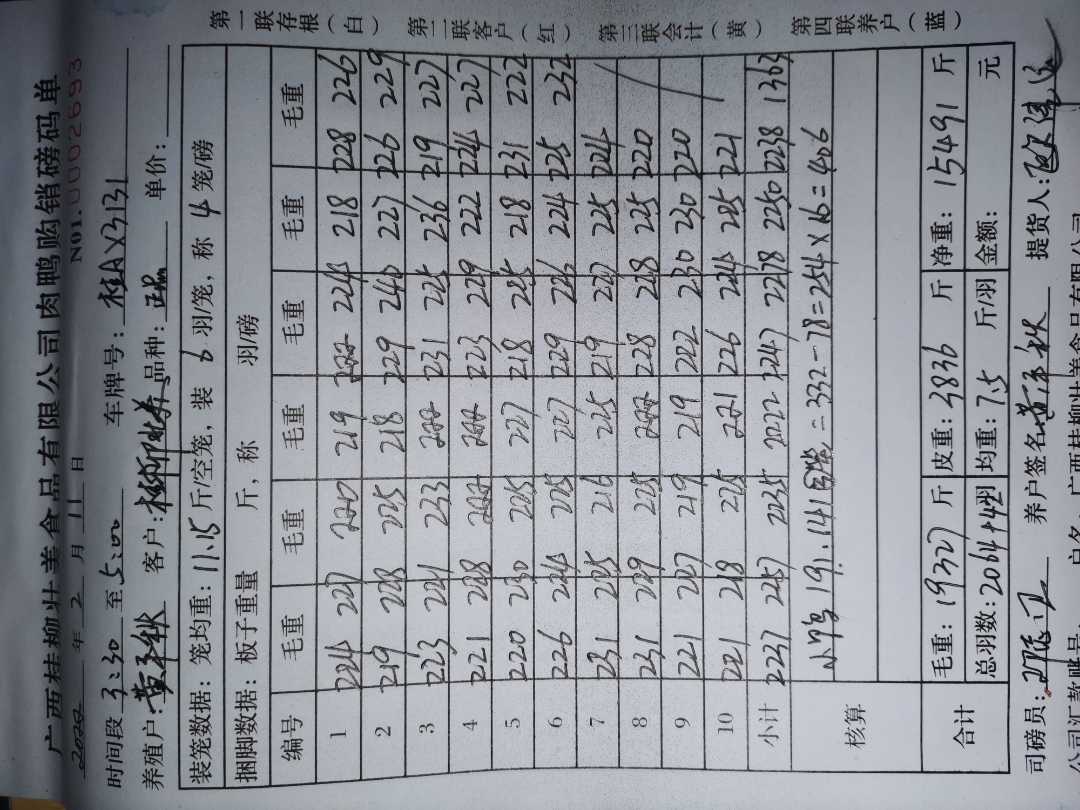 第一联存根(白) 第二联客户(红) 第三联会计(黄) 第四联养户(蓝)
广西桂柳牡美食品有限公司肉鸭购销磅码单
年 2 月 11 日 N01.0002693
时间段 3:30 至 5:00 车牌号: 桂AX3131
养殖户: 客户: 品种: 单价:
装笼数据: 笼均重: 11.15 斤/空笼, 装 6 羽/笼, 称 4 笼/磅
捆脚数据: 板子重量 斤, 称 羽/磅
编号 毛重 毛重 毛重 毛重 毛重 毛重
1 224 227 220 219 222 224 218 228 226
2 219 228 225 218 229 240 227 226 229
3 223 221 233 222 231 225 236 219 227
4 221 228 222 222 223 229 222 224 227
5 220 230 225 227 218 225 218 231 222
6 226 224 225 227 229 226 224 225 232
7 231 225 216 225 219 227 225 224
8 231 229 225 222 228 228 225 220
9 221 227 219 219 222 230 230 220
10 221 218 225 221 226 224 225 221
小计 2237 2257 2235 2222 2247 2278 2250 2238 1363
核算 =332-78=254×16=406
合计 毛重: 19327 斤 皮重: 3836 斤 净重: 15491 斤
总羽数: 2064+4羽 均重: 7.5 斤/羽 金额: 元
司磅员: 养户签名 提货人:
公司汇款账号 户名